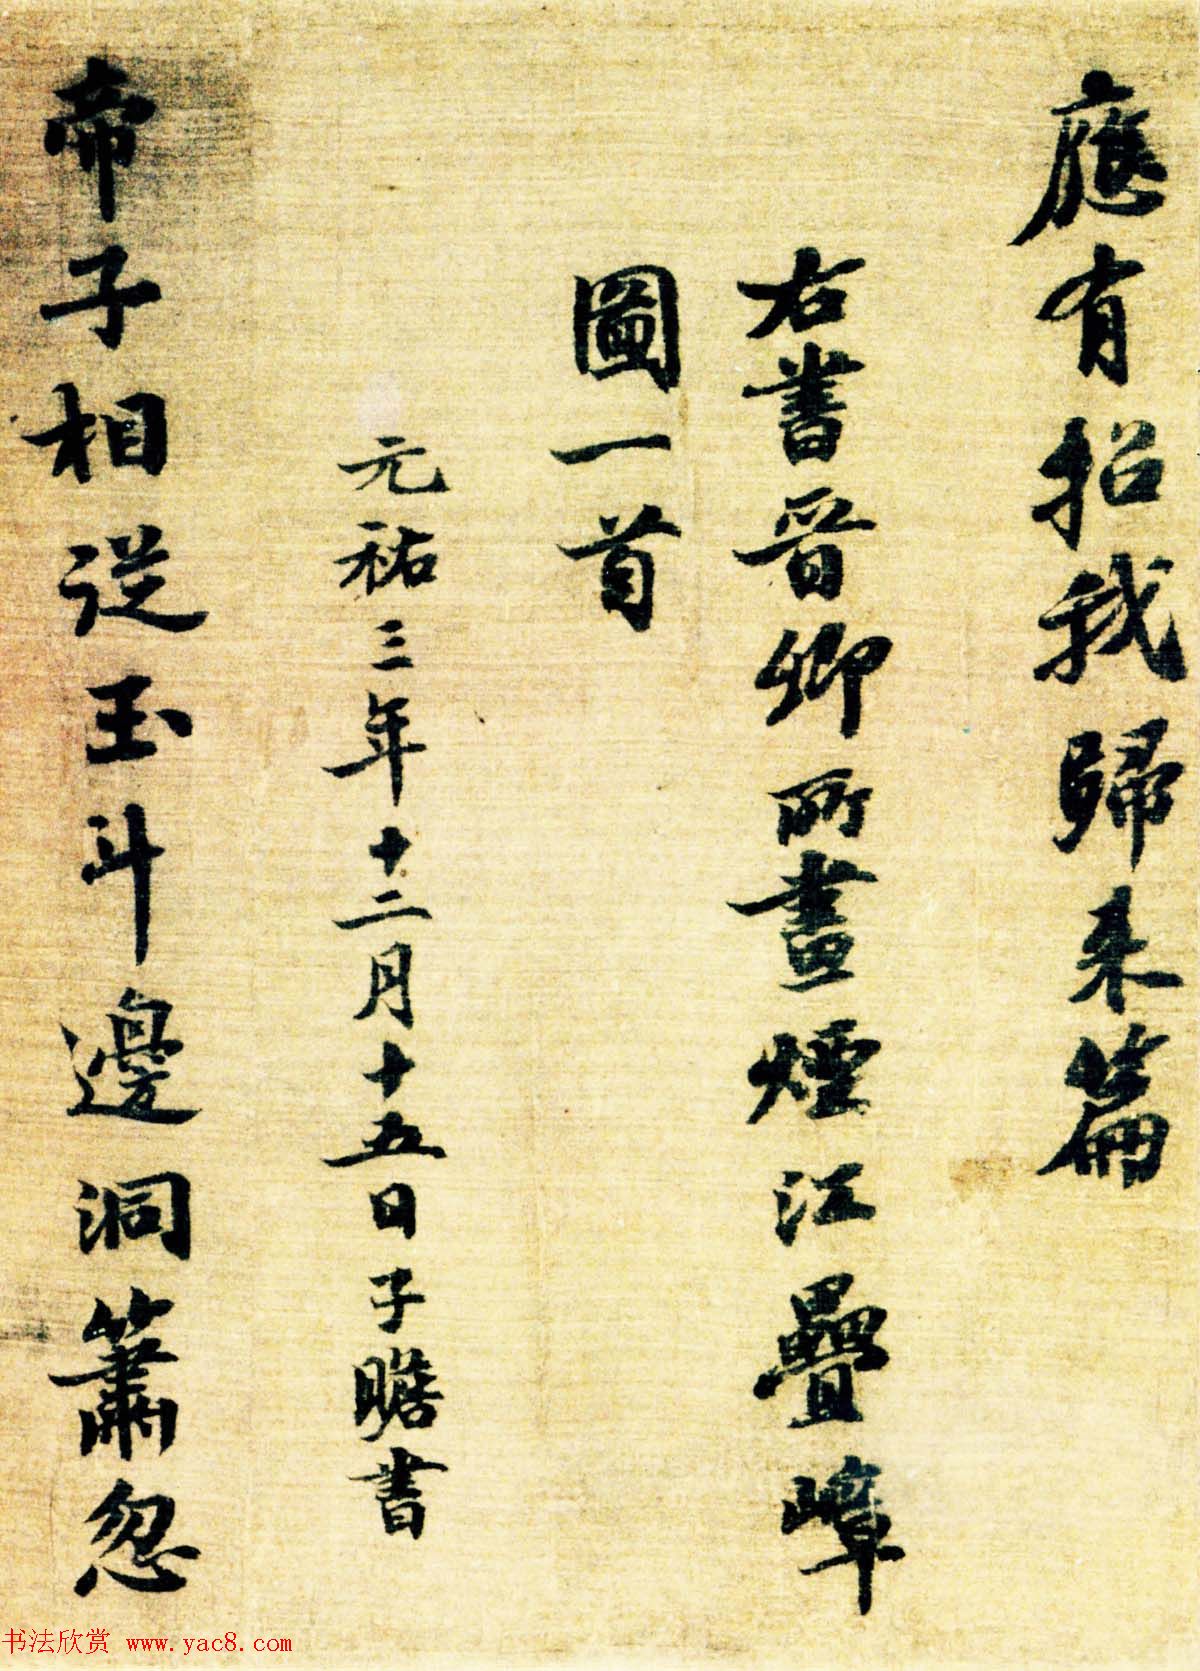 應有招我歸来篇
右書晉卿所畫煙江疊嶂
圖一首
元祐三年十二月十五日子瞻書
帝子相從玉斗邊洞簫忽
书法欣赏 www.yac8.com